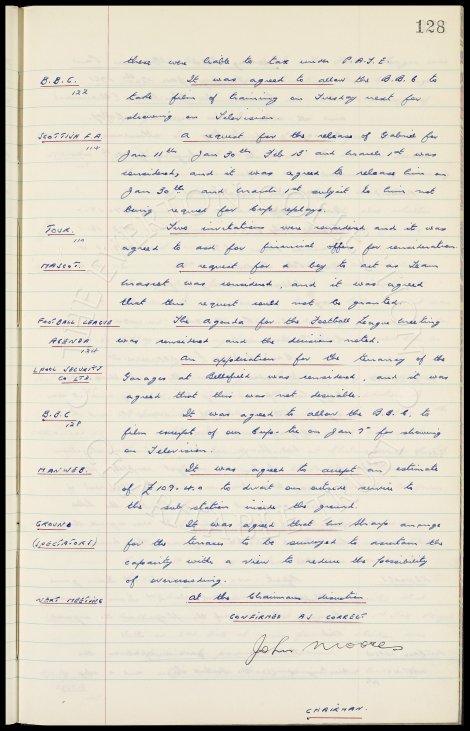 128
these were liable to tax under P.A.Y.E.
B.B.C. It was agreed to allow the B.B.C. to
122 take film of training on Tuesday next for
showing on Television.
SCOTTISH F.A. A request for the release of Gabriel for
114 Jan 11th Jan 30th Feb 15 and March 1st was
considered, and it was agreed to release him on
Jan 30th and March 1st subject to him not
being required for Cup replays.
TOUR. Two invitations were considered and it was
110 agreed to ask for financial offers for consideration.
MASCOT. A request for a boy to act as Team
mascot was considered, and it was agreed
that this request could not be granted.
FOOTBALL LEAGUE The Agenda for the Football League Meeting
AGENDA was considered and the decisions noted.
124 An application for the tenancy of the
LPOOL SECURITY Garages at Bellefield was considered, and it was
CO LTD. agreed that this was not desirable.
B.B.C It was agreed to allow the B.B.C. to
128 film excerpt of our Cup-tie on Jan 7th for showing
on Television.
MANWEB. It was agreed to accept an estimate
of £109.4.0 to divert our outside service to
the sub station inside the ground.
GROUND It was agreed that Mr Sharp arrange
(SPECTATORS) for the terraces to be surveyed to ascertain the
capacity with a view to reduce the possibility
of overcrowding.
NEXT MEETING At the Chairmans direction
CONFIRMED AS CORRECT
John Moores
CHAIRMAN.